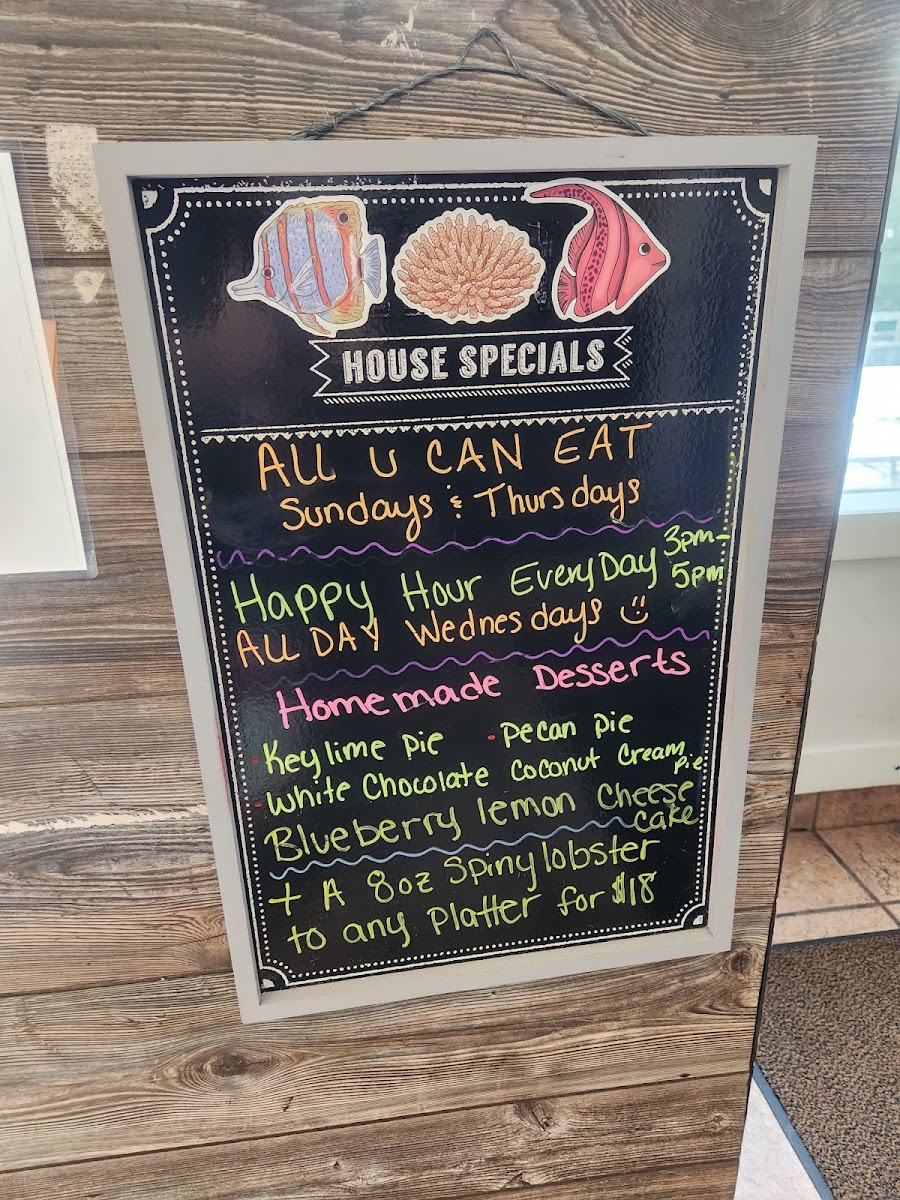 HOUSE SPECIALS
ALL U CAN EAT
Sundays & Thursdays
Happy Hour EveryDay 3pm-
5pm
ALL DAY Wednesdays
Homemade Desserts
· Key lime pie · Pecan pie
· White Chocolate Coconut Cream
pie
Blueberry lemon Cheese
cake
+ A 8oz Spiny lobster
to any Platter for $18